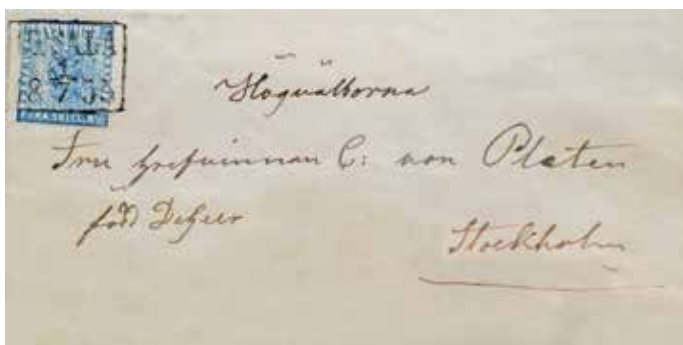 Högvälborna
Fru Grefvinnan C: von Platen
född DeGeer
Stockholm